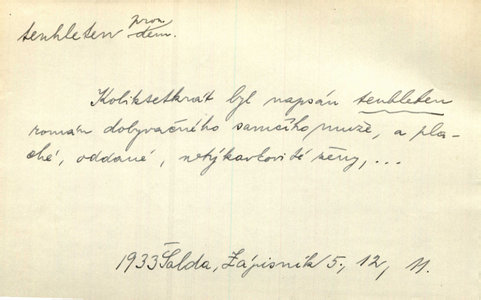 tenhleten pron. dem.
Koliksetkrát byl napsán tenhleten
román dobyvačného samčího muže, a pla-
ché, oddané, netýkavkovité ženy, ...
1933 Šalda, Zápisník 5, 12, 11.